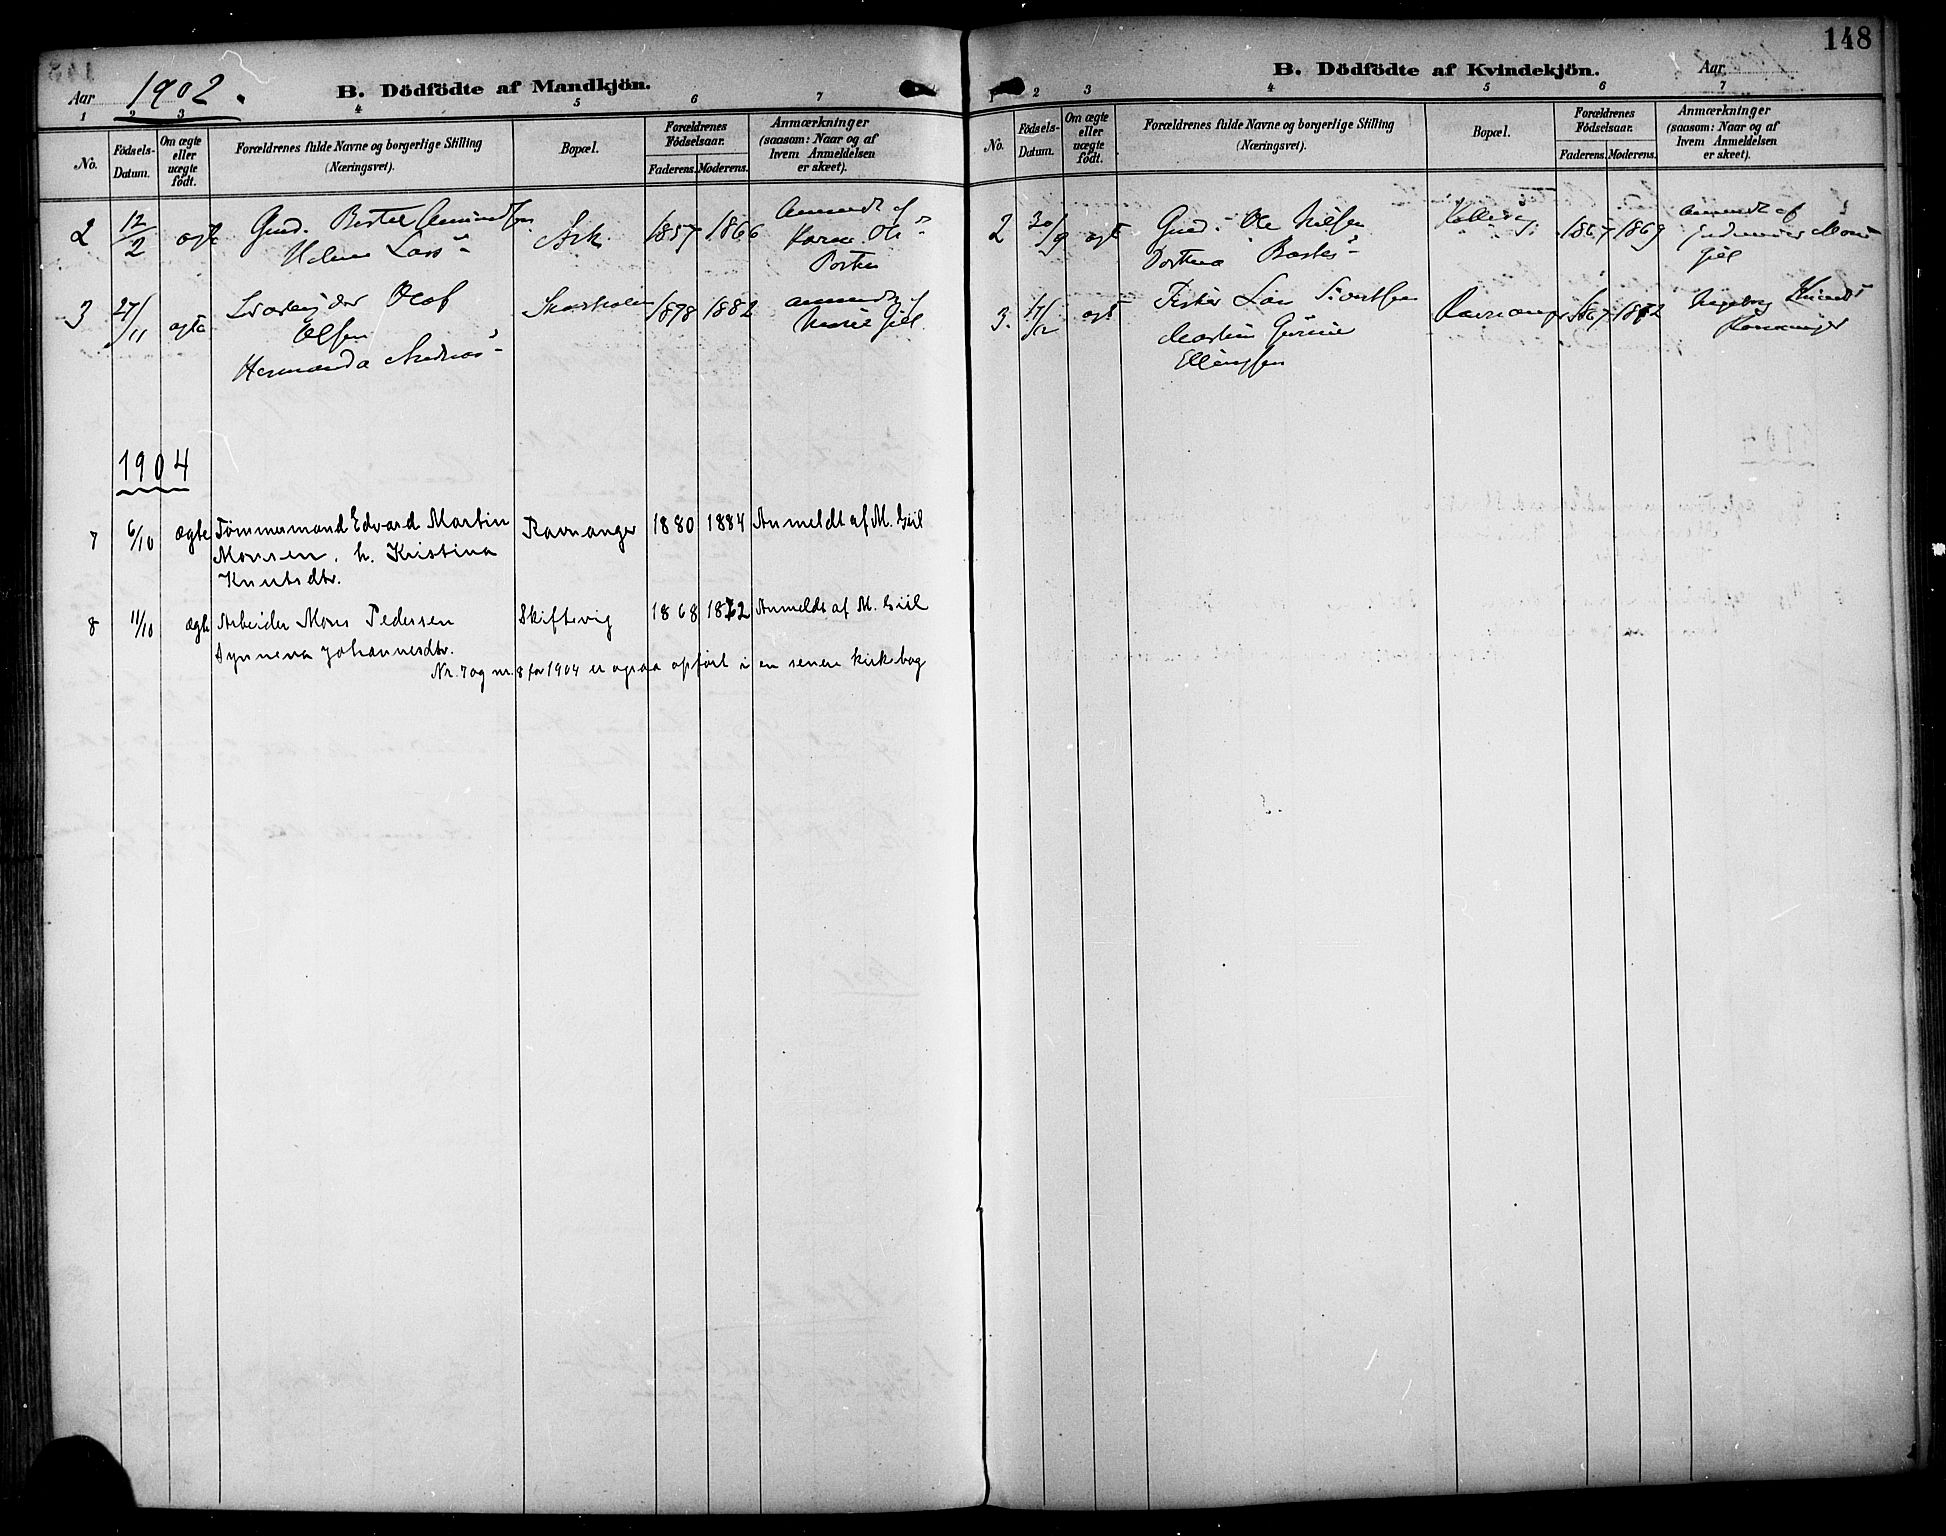 148
Aar 1902.
B. Dödfödte af Mandkjön.
1 2 3 4 5 6 7
No.
Fødsels-Datum.
Om ægte eller uægte født.
Forældrenes fulde Navne og borgerlige Stilling (Næringsvei).
Bopæl.
Forældrenes Fødselsaar.
Faderens. Moderens.
Anmærkninger (saasom: Naar og af hvem Anmeldelsen er skeet).
2 12/2 ægte Gmd. Bertel Amundsen Ask 1857 1866 Anmeldt af
Helene Lars
3 27/11 ægte Olaf 1878 1882 anmeldt af
Olsen
Hermanda Andreas
1904
7 6/10 ægte Tømmermand Edvard Martin Ravnanger 1880 1884 Anmeldt af M. Giil
Monsen, h. Kristina
Knutsdtr.
8 11/10 ægte Arbeider Mons Pedersen Skiftsvig 1868 1872 Anmeldt af M. Giil
Synneva Johannesdtr.
Nr. 7 og nr. 8 for 1904 er ogsaa opført i en senere kirkebog
B. Dödfödte af Kvindekjön.
Aar
1 2 3 4 5 6 7
No.
Fødsels-Datum.
Om ægte eller uægte født.
Forældrenes fulde Navne og borgerlige Stilling (Næringsvei).
Bopæl.
Forældrenes Fødselsaar.
Faderens. Moderens.
Anmærkninger (saasom: Naar og af hvem Anmeldelsen er skeet).
2 30/9 ægt Gmd. Ole Nilsen 1867 1869 Anmeldt af
Giil
3. ægt Fisker Ravnanger 1867 1872 Ingeborg
Ellingsen Ravnanger